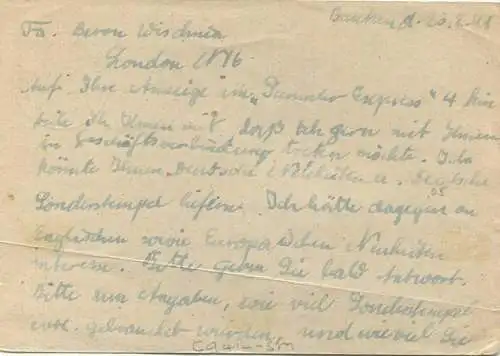 Bautzen, d. 20. 2. 48
Fa. Baron Wischnia
London N16
Auf Ihre Anzeige im „Sammler Express" 4
teile ich Ihnen mit, daß ich gern mit Ihnen
in Geschäftsverbindung treten möchte. Ich
könnte Ihnen Deutsche Neuheiten u. Deutsche
Sonderstempel liefern. Ich hätte dagegen an
Englischen sowie Europäischen Neuheiten
Interesse. Bitte geben Sie bald Antwort.
Bitte um Angaben, wie viel Sonderstempel
gebraucht würden, und wie viel Sie